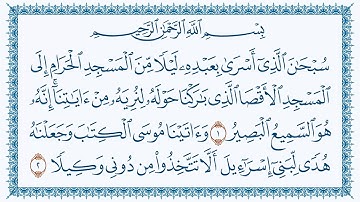 بِسْمِ ٱللَّهِ ٱلرَّحْمَٰنِ ٱلرَّحِيمِ
سُبْحَٰنَ ٱلَّذِىٓ أَسْرَىٰ بِعَبْدِهِۦ لَيْلًا مِّنَ ٱلْمَسْجِدِ ٱلْحَرَامِ إِلَى
ٱلْمَسْجِدِ ٱلْأَقْصَا ٱلَّذِى بَٰرَكْنَا حَوْلَهُۥ لِنُرِيَهُۥ مِنْ ءَايَٰتِنَآ إِنَّهُۥ
هُوَ ٱلسَّمِيعُ ٱلْبَصِيرُ ١ وَءَاتَيْنَا مُوسَى ٱلْكِتَٰبَ وَجَعَلْنَٰهُ
هُدًى لِّبَنِىٓ إِسْرَٰٓءِيلَ أَلَّا تَتَّخِذُوا۟ مِن دُونِى وَكِيلًا ٢